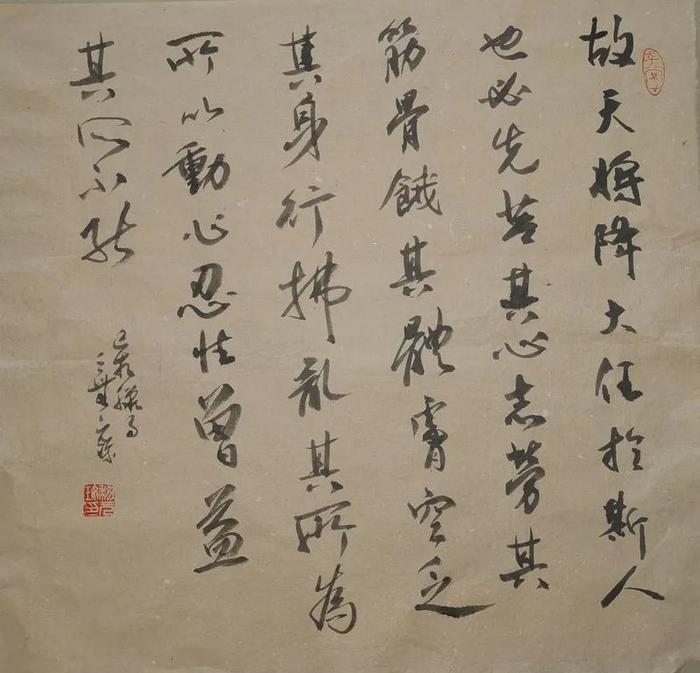 故天將降大任於斯人
也必先苦其心志勞其
筋骨餓其體膚空乏
其身行拂亂其所為
所以動心忍性曾益
其所不能
己亥臘月